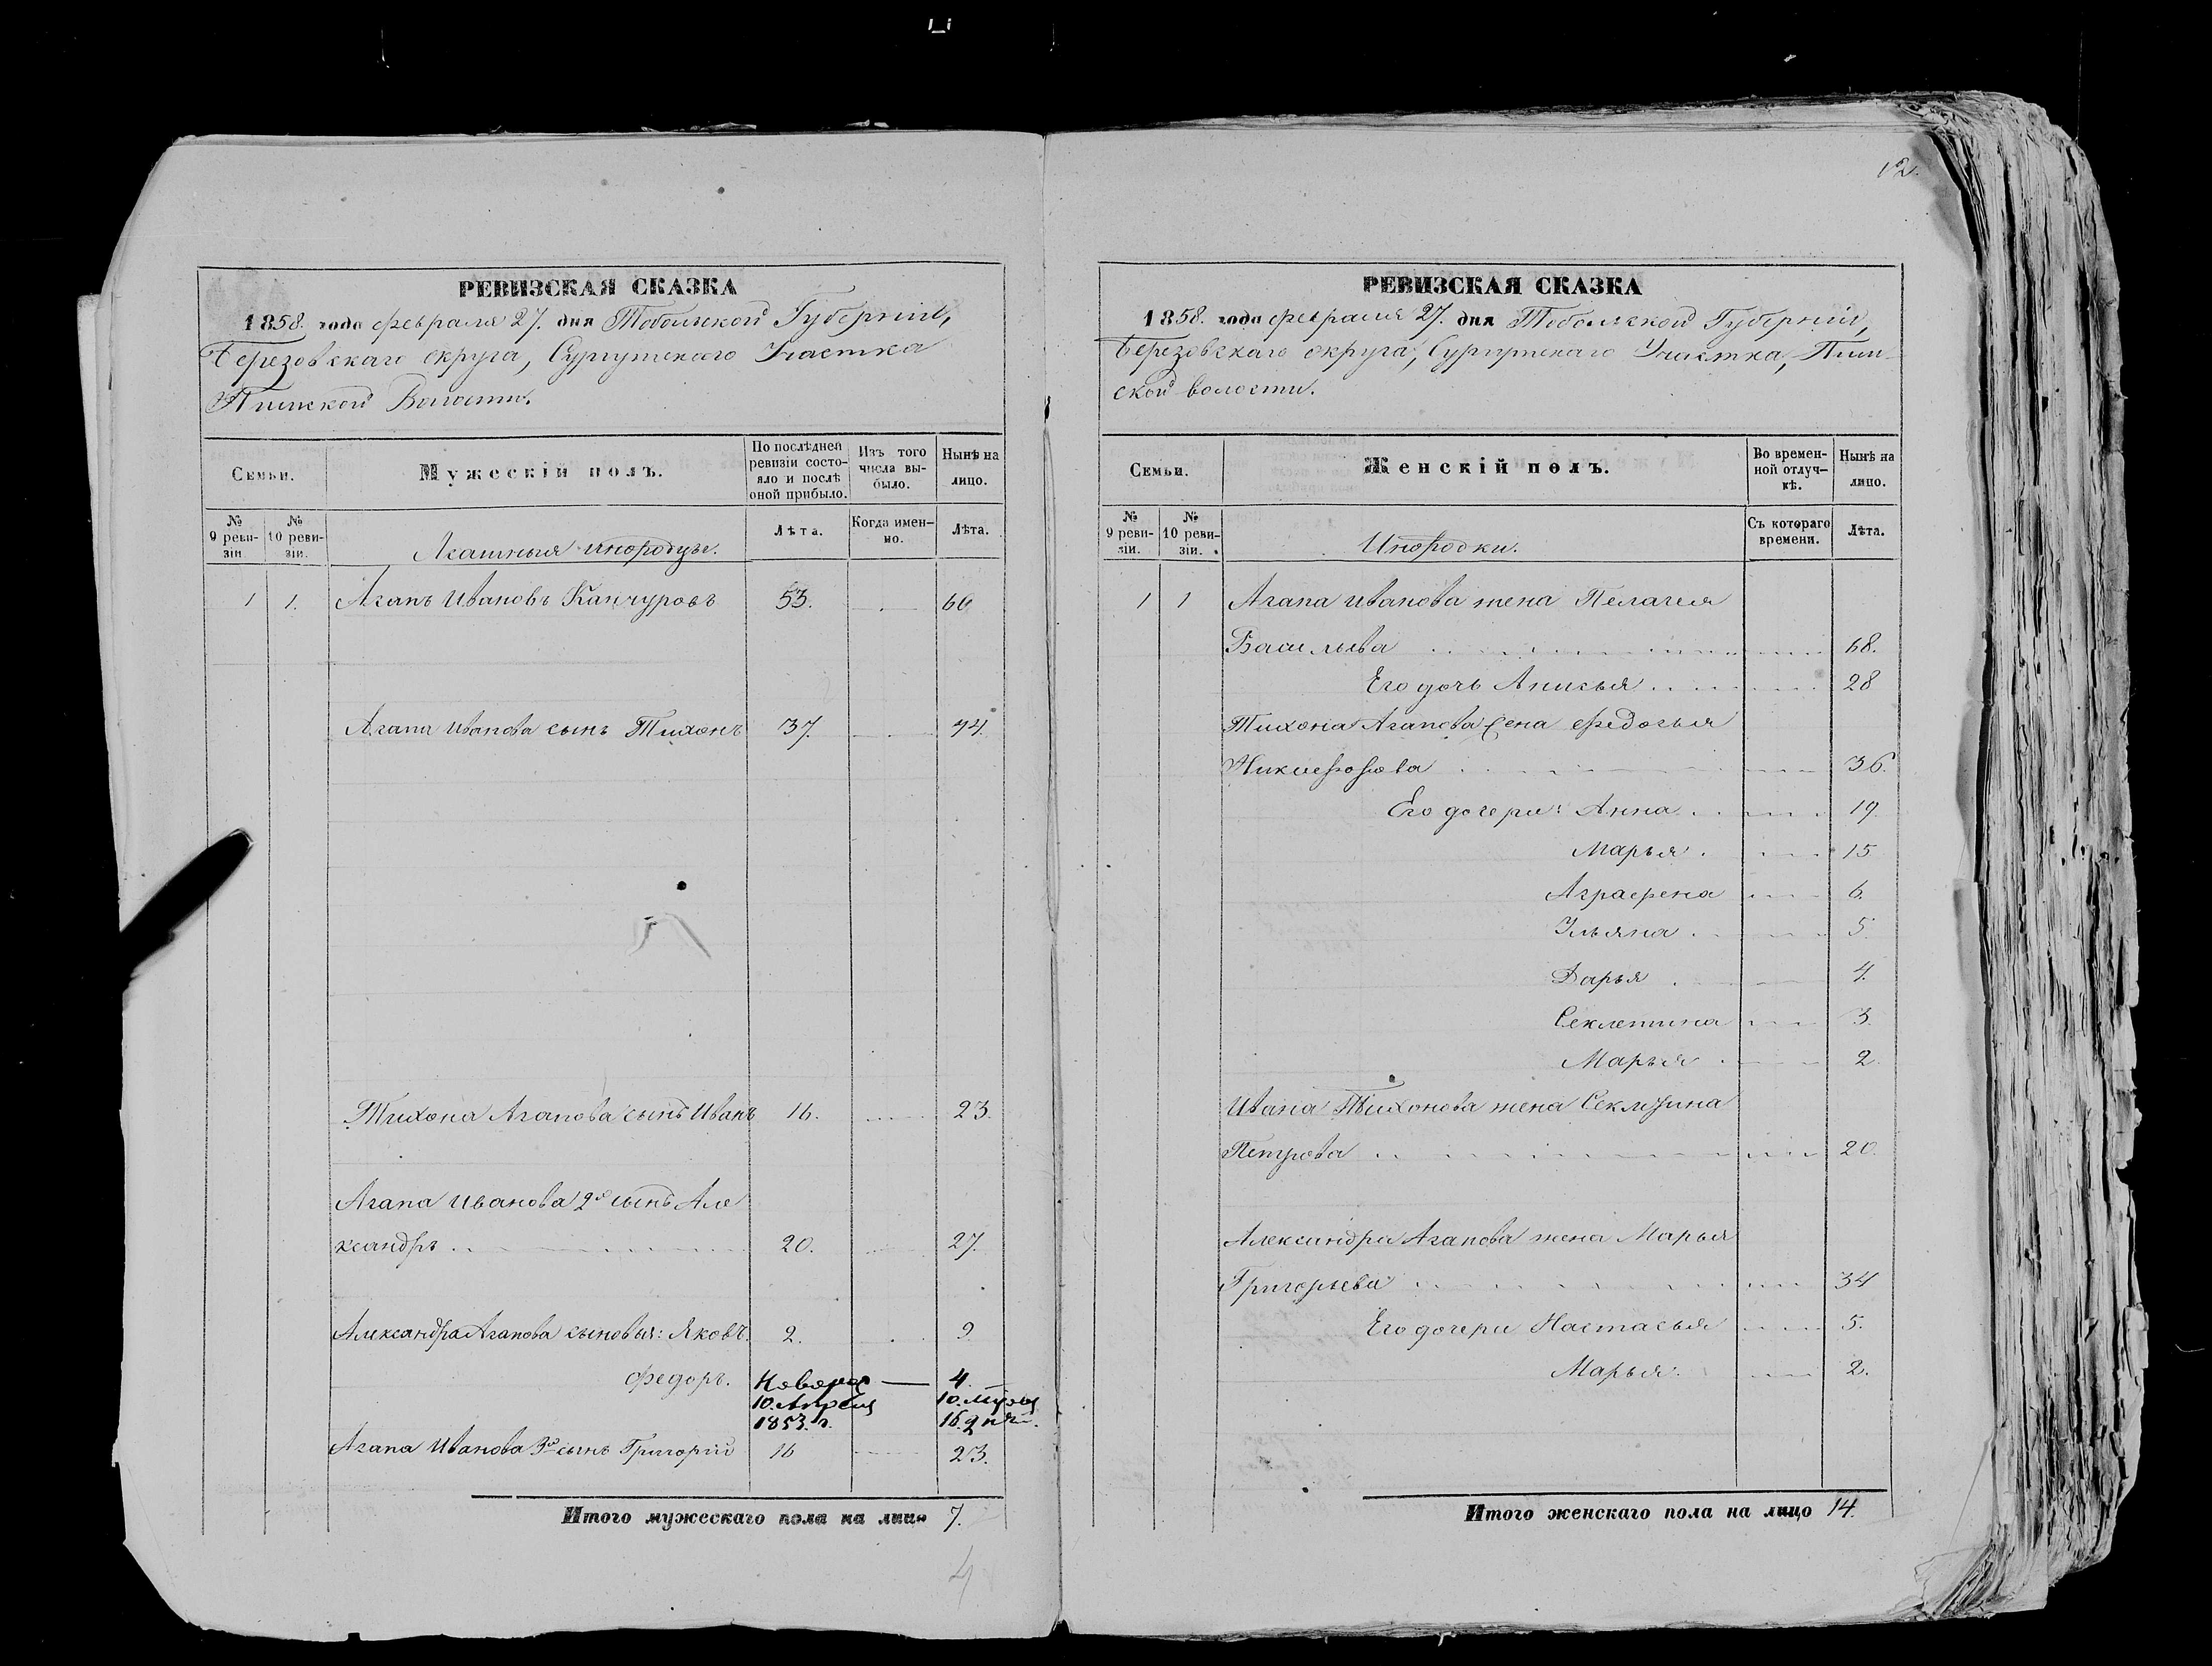 12.
РЕВИЗСКАЯ СКАЗКА
1858. года февраля 27. дня Тобольской Губерніи,
Березовскаго округа, Сургутскаго Участка
Пимской Волости.
Семьи.
Мужескій полъ.
По послѣдней ревизіи состояло и послѣ оной прибыло.
Изъ того числа выбыло.
Нынѣ на лицо.
№ 9 ревизіи.
№ 10 ревизіи.
инородцы.
Лѣта.
Когда именно.
Лѣта.
1 1. Агапъ Ивановъ Канчуровъ 53. 66
Агапа Иванова сынъ Тихонъ 37. 44.
Тихона Агапова сынъ Иванъ 16. 23.
Агапа Иванова 2й сынъ Але
ксандръ 20. 27.
Александра Агапова сыновья: Яковъ. 2. 9.
Федоръ. Новорож 4.
10. Апреля 10. мѣсяц
1853. г. 16. дней.
Агапа Иванова 3й сынъ Григорій 16 23.
Итого мужескаго пола на лицо 7.
4
РЕВИЗСКАЯ СКАЗКА
1858. года февраля 27. дня Тобольской Губерніи,
Березовскаго округа, Сургутскаго Участка, Пим-
ской волости.
Семьи.
Женскій полъ.
Во временной отлучкѣ.
Нынѣ на лицо.
№ 9 ревизіи.
№ 10 ревизіи.
Инородки.
Съ котораго времени.
Лѣта.
1 1 Агапа Иванова жена Пелагея
Васильева 68.
Его дочь Анисья 28
Тихона Агапова жена Федосья
Никифорова 36.
Его дочери: Анна 19.
Марья 15
Аграфена 6.
Ульяна 5.
Дарья 4.
Секлетина 3.
Марья 2.
Ивана Тихонова жена
Петрова 20.
Александра Агапова жена Марья
Григорьева 34
Его дочери Настасья 5.
Марья 2.
Итого женскаго пола на лицо 14.